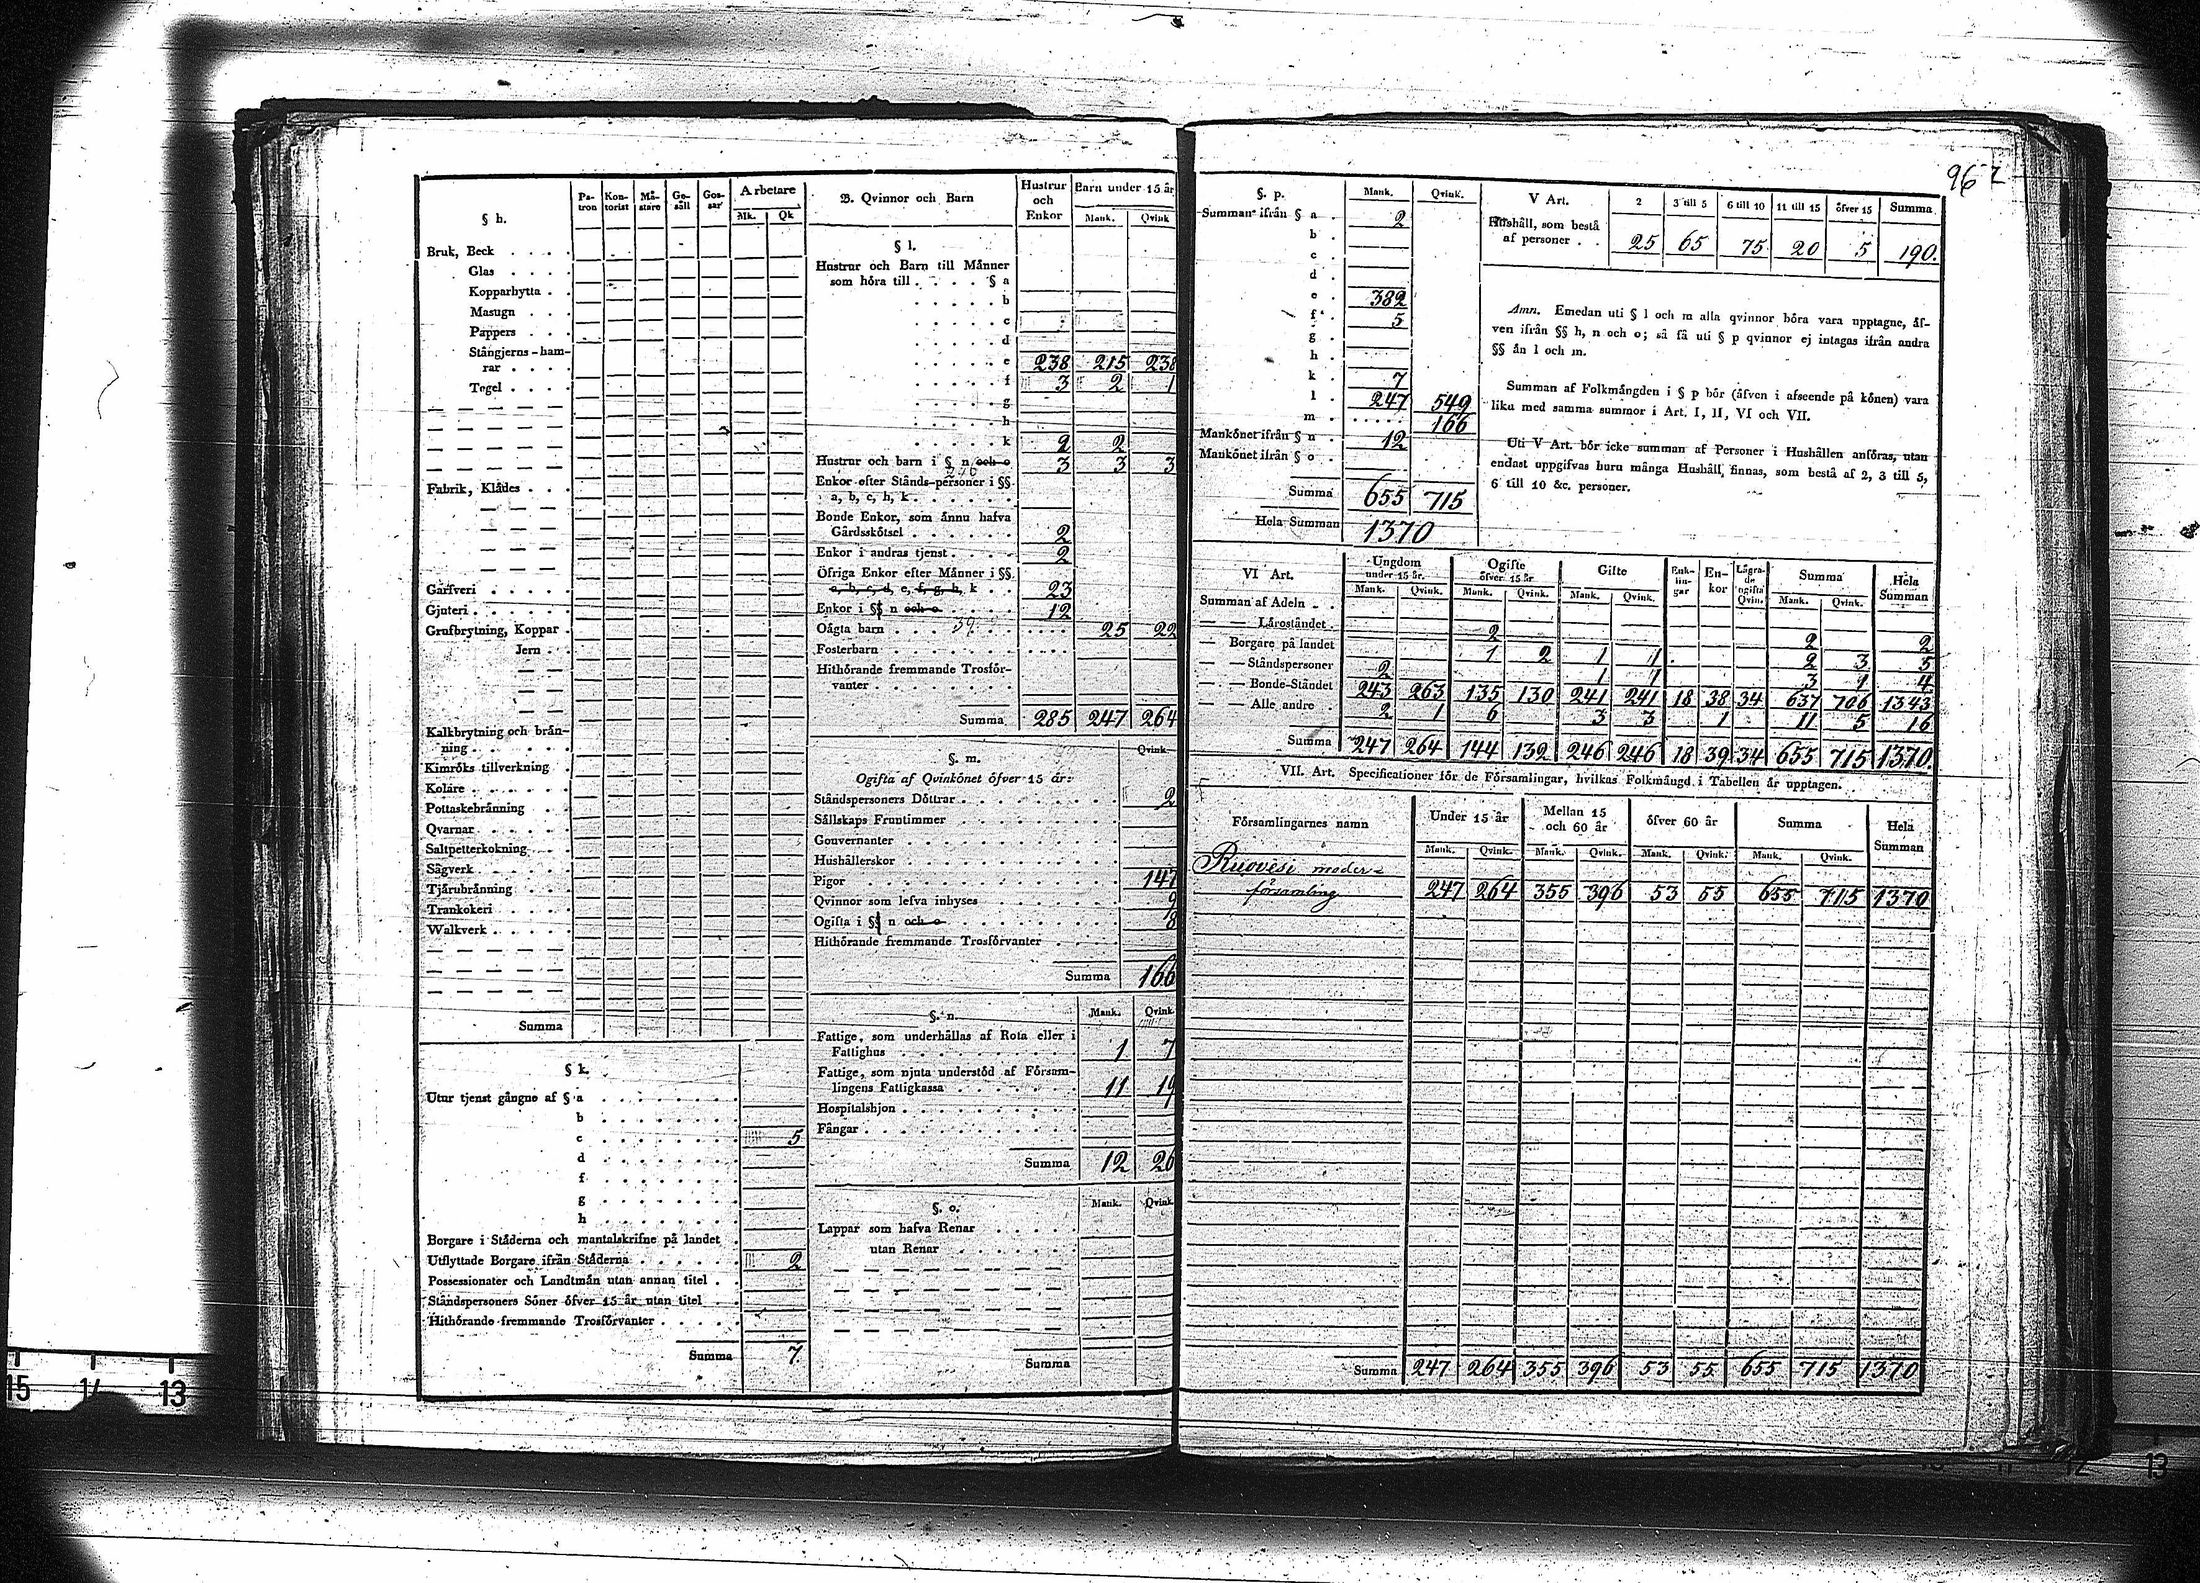 962
§ h.
Pa-tron Kon-torist Mä-stare Ge-säll Gos-sar Arbetare
Mk. Qk
Bruk, Beck
Glas
Kopparhytta
Masugn
Pappers
Stångjerns-ham-
rar
Tegel
Fabrik, Klädes
Garfveri
Gjuteri
Grufbrytning, Koppar
Jern
Kalkbrytning och brän-
ning
Kimröks tillverkning
Kolare
Pottaskebränning
Qvarnar
Saltpetterkokning
Sågverk
Tjärubränning
Trankokeri
Walkverk
Summa
§ k.
Utur tjenst gångne af § a
b
c 5
d
f
g
h
Borgare i Städerna och mantalskrifne på landet
Utflyttade Borgare ifrån Städerna 2
Possessionater och Landtmän utan annan titel
Ståndspersoners Söner öfver 15 år utan titel
Hithörande fremmande Trosförvanter
Summa 7
B. Qvinnor och Barn Hustrur och Enkor Barn under 15 år
Mank. Qvink
§ l.
Hustrur och Barn till Männer
som höra till § a
b
c
d
e 238 215 238
f 3 2 1
g
h
k 2 2
Hustrur och barn i § n och o 3 3 3
Enkor efter Stånds-personer i §§
a, b, c, h, k
Bonde Enkor, som ännu hafva
Gårdsskötsel 2
Enkor i andras tjenst 2
Öfriga Enkor efter Männer i §§
a, b, c, d, e, f, g, h, k 23
Enkor i §§ n och o 12
Oägta barn 25 22
Fosterbarn
Hithörande fremmande Trosför-
vanter
Summa 285 247 264
§. m. Qvink.
Ogifta af Qvinkönet öfver 15 år:
Ståndspersoners Döttrar 2
Sällskaps Fruntimmer
Gouvernanter
Hushållerskor
Pigor 147
Qvinnor som lefva inhyses 9
Ogifta i §§ n och o 8
Hithörande fremmande Trosförvanter
Summa 166
§. n. Mank. Qvink.
Fattige, som underhållas af Rota eller i
Fattighus 1 7
Fattige, som njuta understöd af Försam-
lingens Fattigkassa 11 19
Hospitalshjon
Fångar
Summa 12 26
§. o. Mank. Qvink
Lappar som hafva Renar
utan Renar
Summa
§. p. Mank. Qvink.
Summan ifrån § a 2
b
c
d
e 382
f 5
g
h
k 7
l 247 549
m 166
Mankönet ifrån § n 12
Mankönet ifrån § o
Summa 655 715
Hela Summan 1370
V Art. 2 3 till 5 6 till 10 11 till 15 öfver 15 Summa
Hushåll, som bestå
af personer 25 65 75 20 5 190.
Anm. Emedan uti § l och m alla qvinnor böra vara upptagne, äf-
ven ifrån §§ h, n och o; så få uti § p qvinnor ej intagas ifrån andra
§§ än l och m.
Summan af Folkmängden i § p bör (äfven i afseende på könen) vara
lika med samma summor i Art. I, II, VI och VII.
Uti V Art. bör icke summan af Personer i Hushållen anföras, utan
endast uppgifvas huru många Hushåll finnas, som bestå af 2, 3 till 5,
6 till 10 &c. personer.
VI Art. Ungdom under 15 år. Ogifte öfver 15 år Gifte Enk-lin-gar En-kor Lägra-de ogifta Qvin. Summa Hela Summan
Mank. Qvink. Mank. Qvink. Mank. Qvink. Mank. Qvink.
Summan af Adeln
— — Läroståndet 2 2 2
— Borgare på landet 1 2 1 1 2 3 5
— — Ståndspersoner 2 1 1 3 1 4
— — Bonde-Ståndet 243 263 135 130 241 241 18 38 34 637 706 1343
— — Alle andre 2 1 6 3 3 1 11 5 16
Summa 247 264 144 132 246 246 18 39 34 655 715 1370.
VII. Art. Specificationer för de Församlingar, hvilkas Folkmängd i Tabellen är upptagen.
Församlingarnes namn Under 15 år Mellan 15 och 60 år öfver 60 år Summa Hela Summan
Mank. Qvink. Mank. Qvink. Mank. Qvink. Mank. Qvink.
Ruovesi moder-
församling 247 264 355 396 53 55 655 715 1370
Summa 247 264 355 396 53 55 655 715 1370
15 14 13
12 13